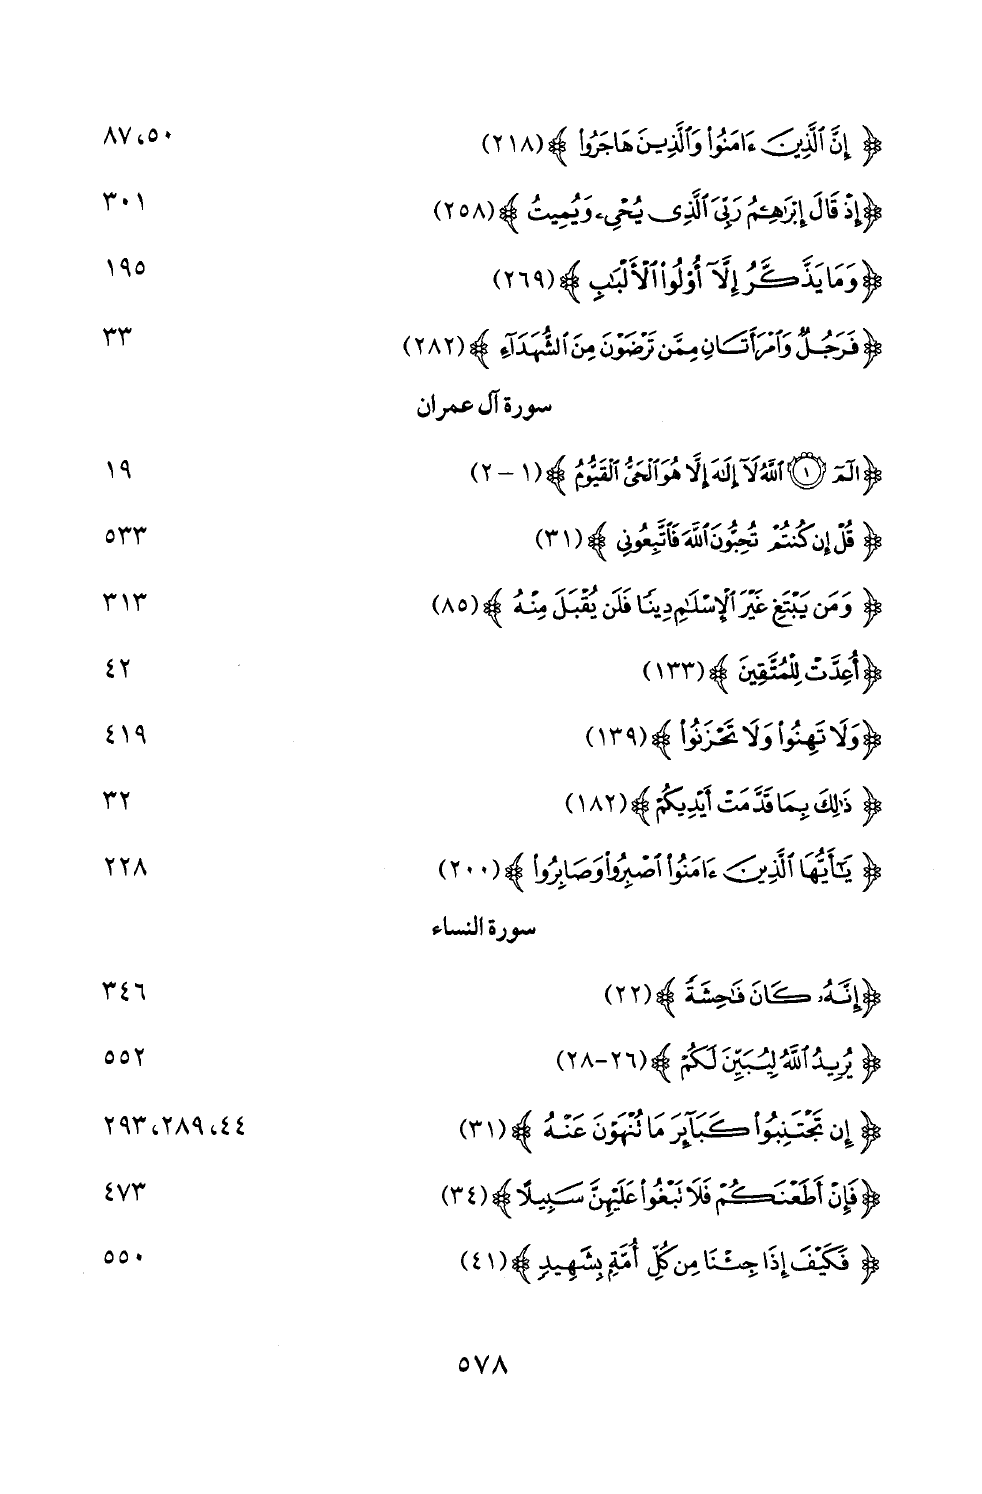 ﴿ إِنَّ ٱلَّذِينَ ءَامَنُوا۟ وَٱلَّذِينَ هَاجَرُوا۟ ﴾ (٢١٨) ٨٧،٥٠
﴿إِذْ قَالَ إِبْرَٰهِـۧمُ رَبِّىَ ٱلَّذِى يُحْىِۦ وَيُمِيتُ ﴾ (٢٥٨) ٣٠١
﴿وَمَا يَذَّكَّرُ إِلَّآ أُو۟لُوا۟ ٱلْأَلْبَٰبِ ﴾ (٢٦٩) ١٩٥
﴿فَرَجُلٌ وَٱمْرَأَتَانِ مِمَّن تَرْضَوْنَ مِنَ ٱلشُّهَدَآءِ ﴾ (٢٨٢) ٣٣
سورة آل عمران
﴿الٓمٓ ۝١ ٱللَّهُ لَآ إِلَٰهَ إِلَّا هُوَ ٱلْحَىُّ ٱلْقَيُّومُ ﴾ (١ – ٢) ١٩
﴿ قُلْ إِن كُنتُمْ تُحِبُّونَ ٱللَّهَ فَٱتَّبِعُونِى ﴾ (٣١) ٥٣٣
﴿ وَمَن يَبْتَغِ غَيْرَ ٱلْإِسْلَٰمِ دِينًا فَلَن يُقْبَلَ مِنْهُ ﴾ (٨٥) ٣١٣
﴿أُعِدَّتْ لِلْمُتَّقِينَ ﴾ (١٣٣) ٤٢
﴿وَلَا تَهِنُوا۟ وَلَا تَحْزَنُوا۟ ﴾ (١٣٩) ٤١٩
﴿ ذَٰلِكَ بِمَا قَدَّمَتْ أَيْدِيكُمْ ﴾ (١٨٢) ٣٢
﴿ يَٰٓأَيُّهَا ٱلَّذِينَ ءَامَنُوا۟ ٱصْبِرُوا۟ وَصَابِرُوا۟ ﴾ (٢٠٠) ٢٢٨
سورة النساء
﴿إِنَّهُۥ كَانَ فَٰحِشَةً ﴾ (٢٢) ٣٤٦
﴿ يُرِيدُ ٱللَّهُ لِيُبَيِّنَ لَكُمْ ﴾ (٢٦-٢٨) ٥٥٢
﴿ إِن تَجْتَنِبُوا۟ كَبَآئِرَ مَا تُنْهَوْنَ عَنْهُ ﴾ (٣١) ٢٩٣،٢٨٩،٤٤
﴿فَإِنْ أَطَعْنَكُمْ فَلَا تَبْغُوا۟ عَلَيْهِنَّ سَبِيلًا ﴾ (٣٤) ٤٧٣
﴿ فَكَيْفَ إِذَا جِئْنَا مِن كُلِّ أُمَّةٍۭ بِشَهِيدٍ ﴾ (٤١) ٥٥٠
٥٧٨